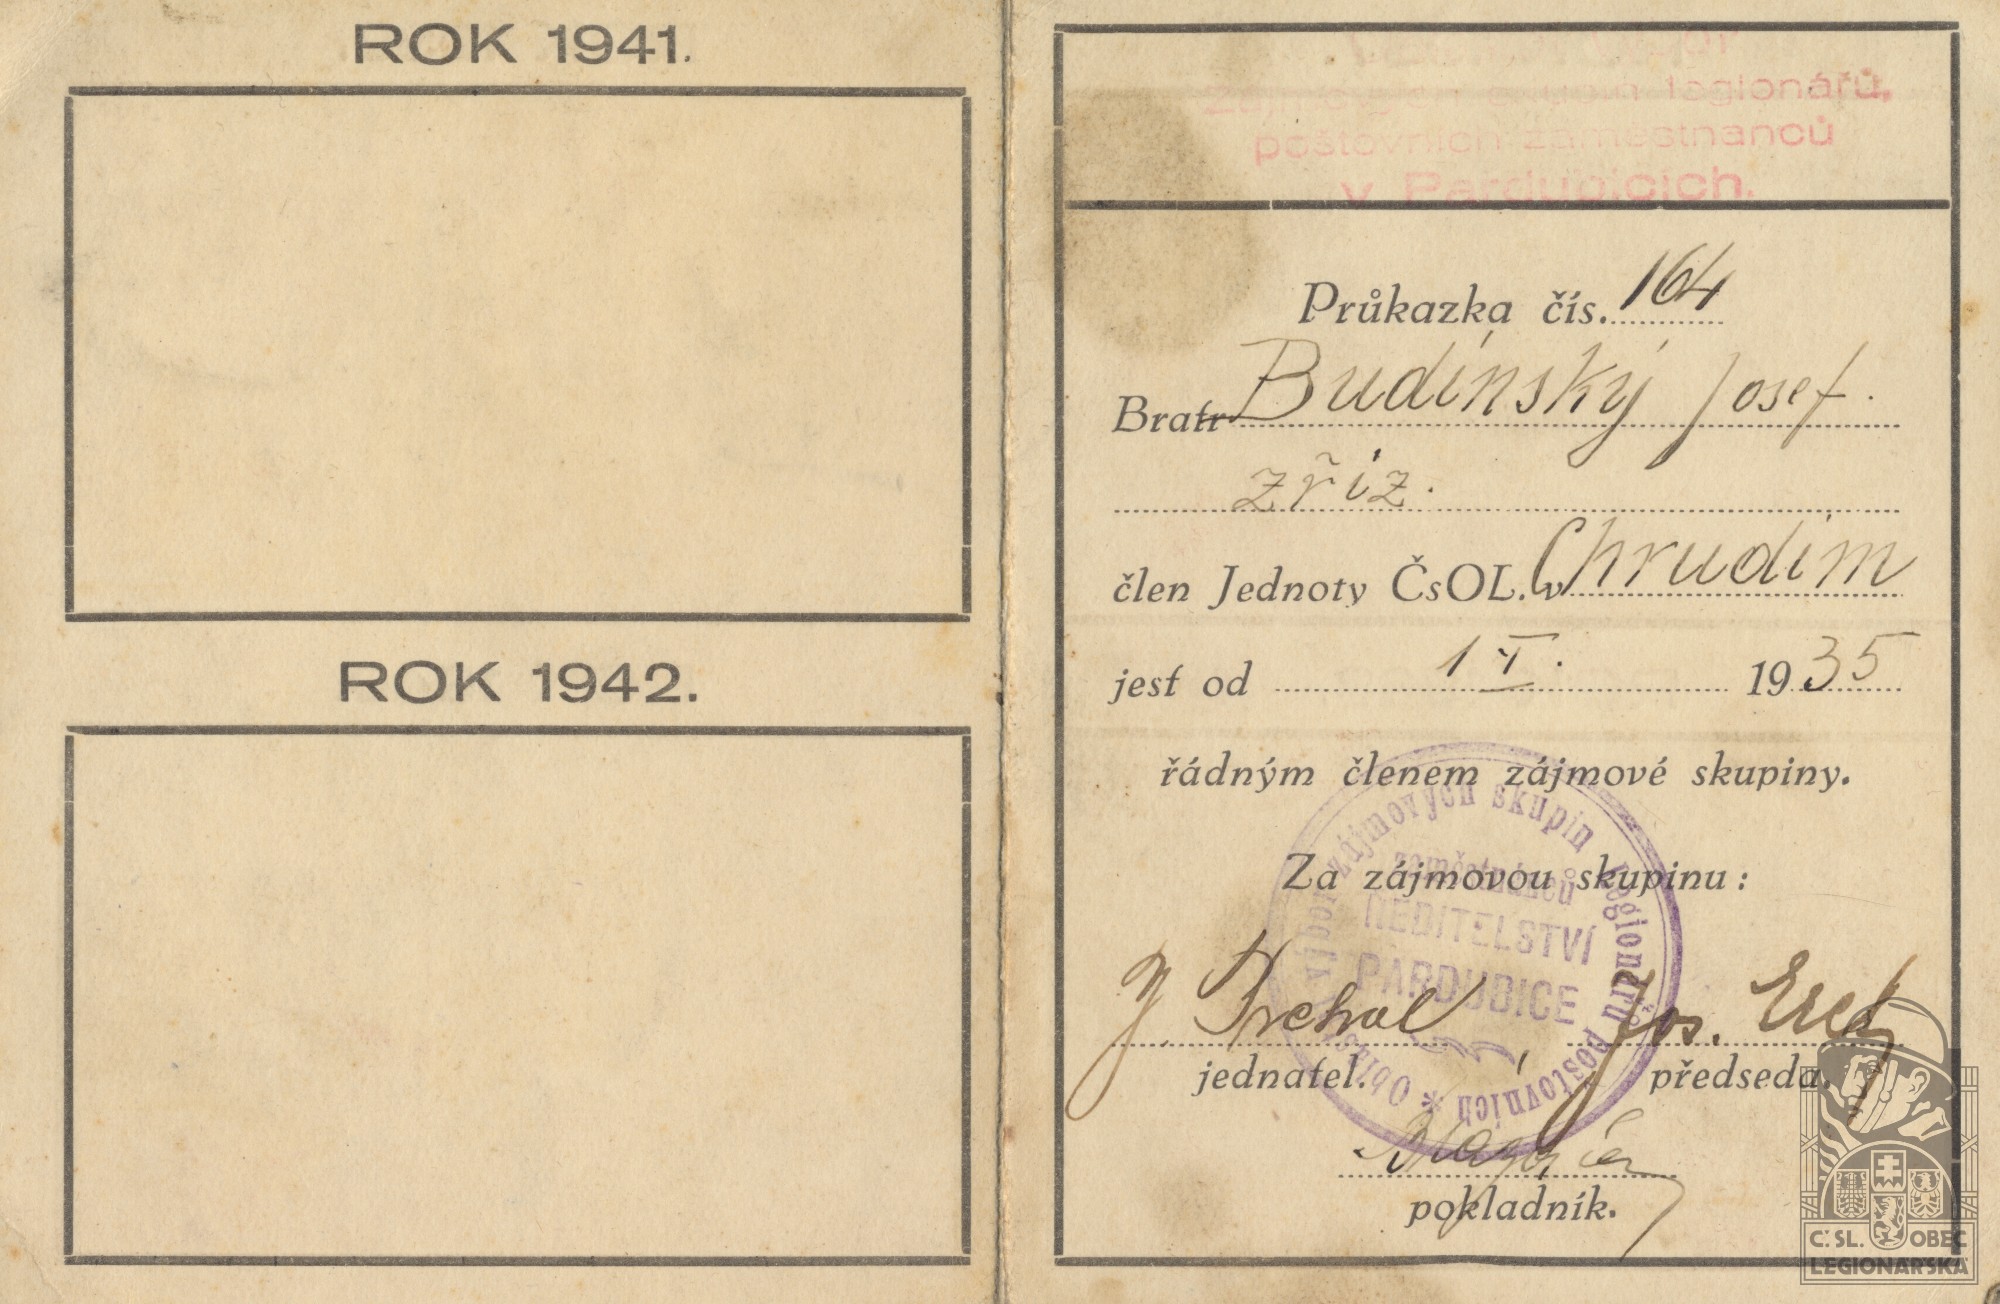 ROK 1941.
ROK 1942.
legionářů,
poštovních zaměstnanců
v Pardubicích.
Průkazka čís. 164
Bratr Budínský Josef.
zříz.
člen Jednoty ČsOL. v Chrudim
jest od 1 I. 1935
řádným členem zájmové skupiny.
Za zájmovou skupinu:
zájmových skupin legionářů poštovních * Oblast
zaměstnanců
ŘEDITELSTVÍ
PARDUBICE
Jos.
jednatel. předseda.
pokladník.
Č. SL. OBEC
LEGIONÁŘSKÁ